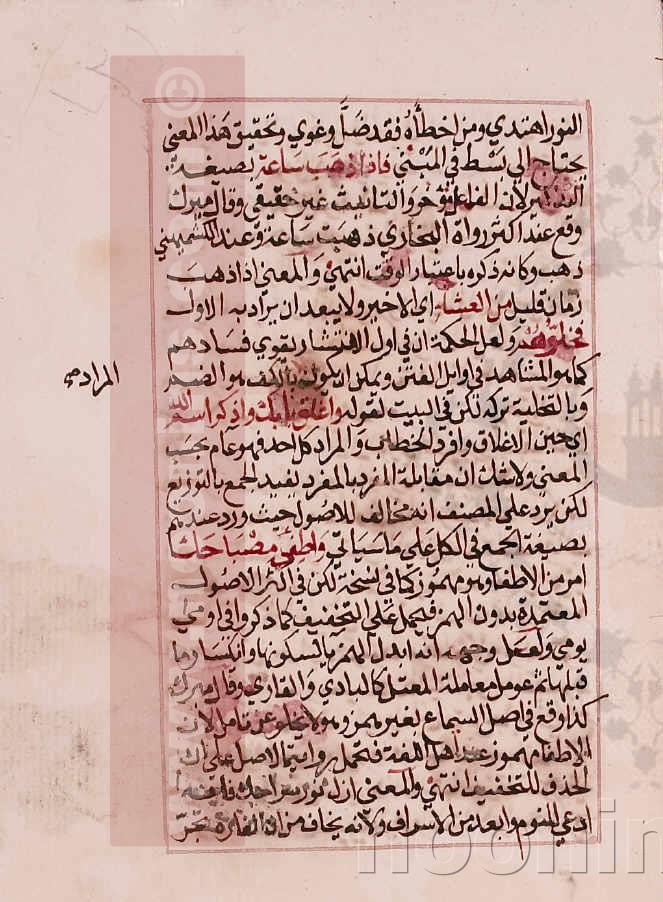 النور اهتدي ومن اخطأه فقد ضل وغوي وتحقيق هذا المعني
يحتاج الي بسط في المبني فاذا ذهب ساعة بصيغة
التذكير لان الفاعل مؤخر والتانيث غير حقيقي وقال ميرك
وقع عند اكثر رواة البخاري ذهبت ساعة وعند الكشميهني
ذهب وكانه ذكره باعتبار الوقت انتهي والمعني اذا ذهب
زمان قليل من العشاء اي الاخير ولا يبعد ان يراد به الاول
فخلوهم ولعل الحكمة ان في اول الانتشار يقوي فسادهم
كما هو المشاهد في اوايل الفتن ويمكن ان يكون بالكف هو الضم
وبالتخلية تركه لكن في البيت لقوله واغلق بابك واذكر اسم الله
اي حين الاغلاق وافرد الخطاب والمراد كل احد فهو عام بحسب
المعني ولا شك ان مقابلة المفرد بالمفرد تفيد الجمع بالتوزيع
لكن يرد علي المصنف انه مخالف للاصول حيث ورد عندهم
بصيغة الجمع في الكل علي ما سياتي واطفي مصباحك
امر من الاطفا وهو مهموز كما في نسخة لكن في اكثر الاصول
المعتمدة بدون الهمز فيحمل علي التخفيف كما ذكروا في اومي
يومي ولعل وجهه انه ابدل الهمز يا لسكونها وانكسار ما
قبلها ثم عومل معاملة المعتل كالبادي والقاري وقال ميرك
كذا وقع في اصل السماع بغير همز وهو لا يخلو عن تامل لان
الاطفا مهموز عند اهل اللغة فتحمل رواية الاصل علي ان
الحذف للتخفيف انتهي والمعني ازل نور سراجك فانه
ادعي للنوم وابعد من الاسراف ولانه يخاف من ان الفارة تجر
المراد صح
noorlin